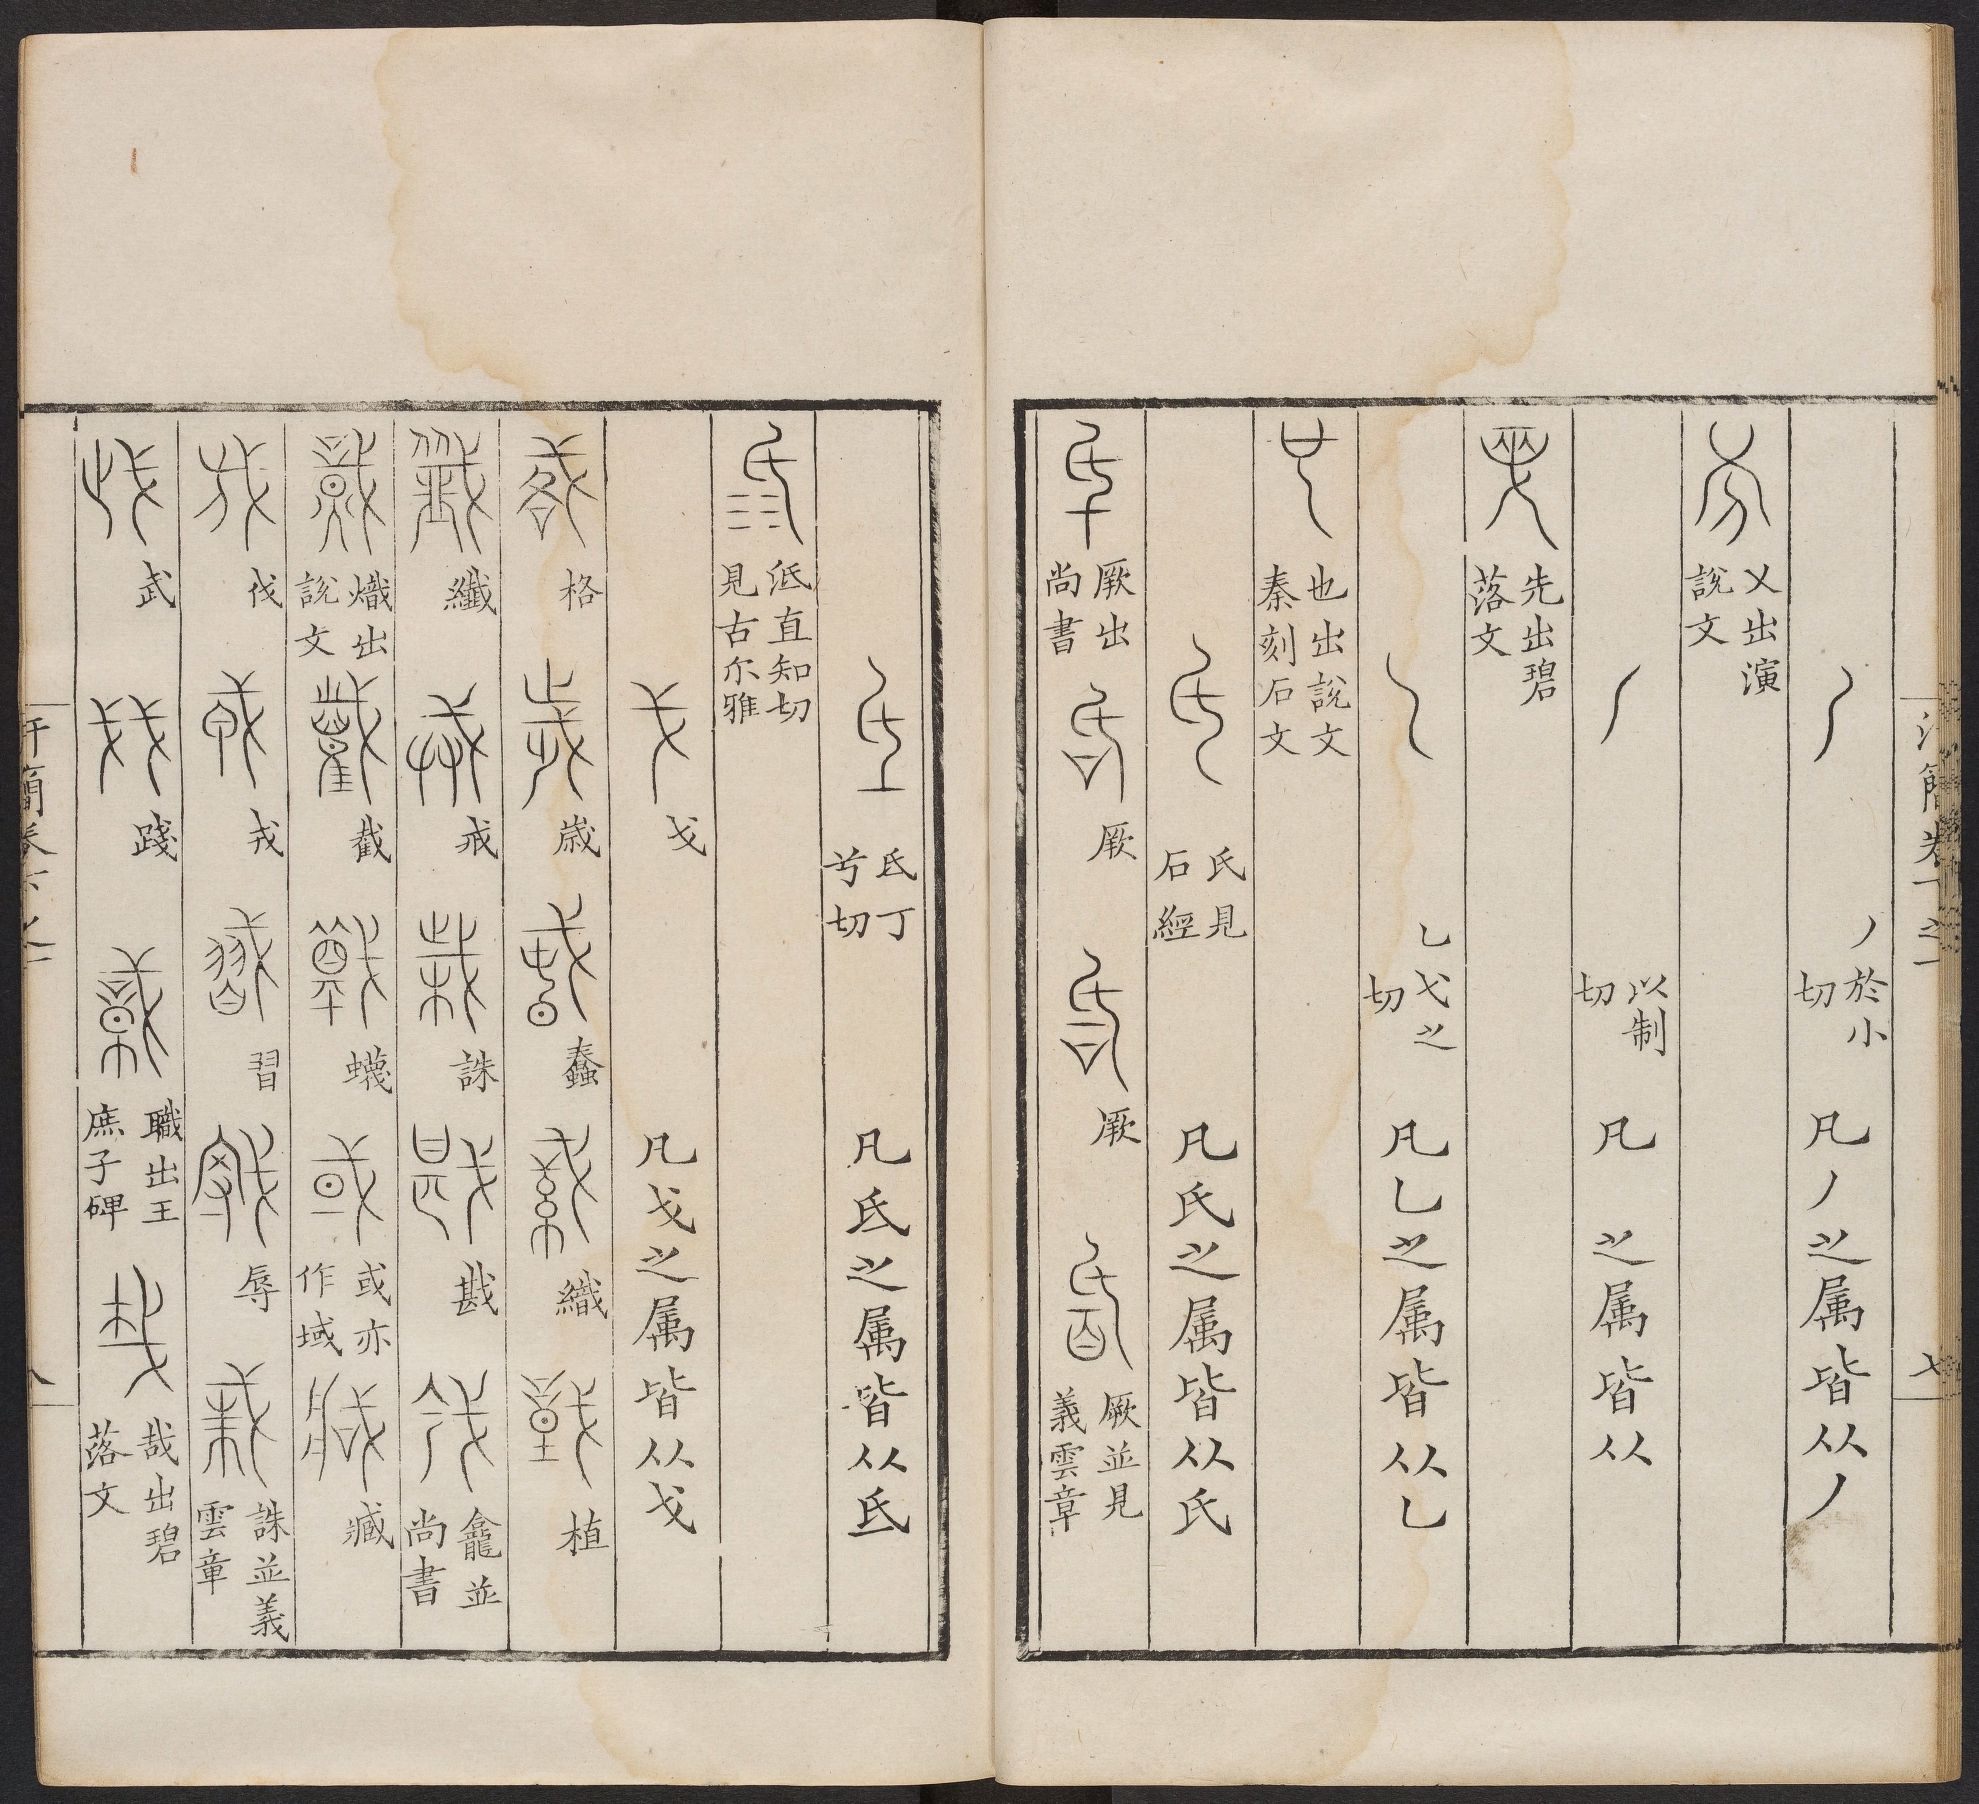 汗簡卷下之一
七
丿於小切
凡丿之属皆从丿
乂出演說文
以制切
凡
之属皆从
先出碧落文
乚弋之切
凡乚之属皆从乚
也出說文秦刻石文
氏見石經
凡氏之属皆从氏
厥出尚書
厥
厥
厥並見義雲章
氐丁兮切
凡氐之属皆从氐
泜直知切見古尓雅
戈
凡戈之属皆从戈
格
歳
蠢
織
植
纖
戒
誅
戡
龕並尚書
熾出說文
截
蠛
或亦作域
臧
伐
戎
習
辱
誅並義雲章
武
踐
職出王庶子碑
哉出碧落文
汗簡卷下之一
八